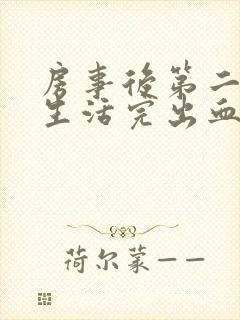 房事後第二
生活完出血
荷尔蒙——